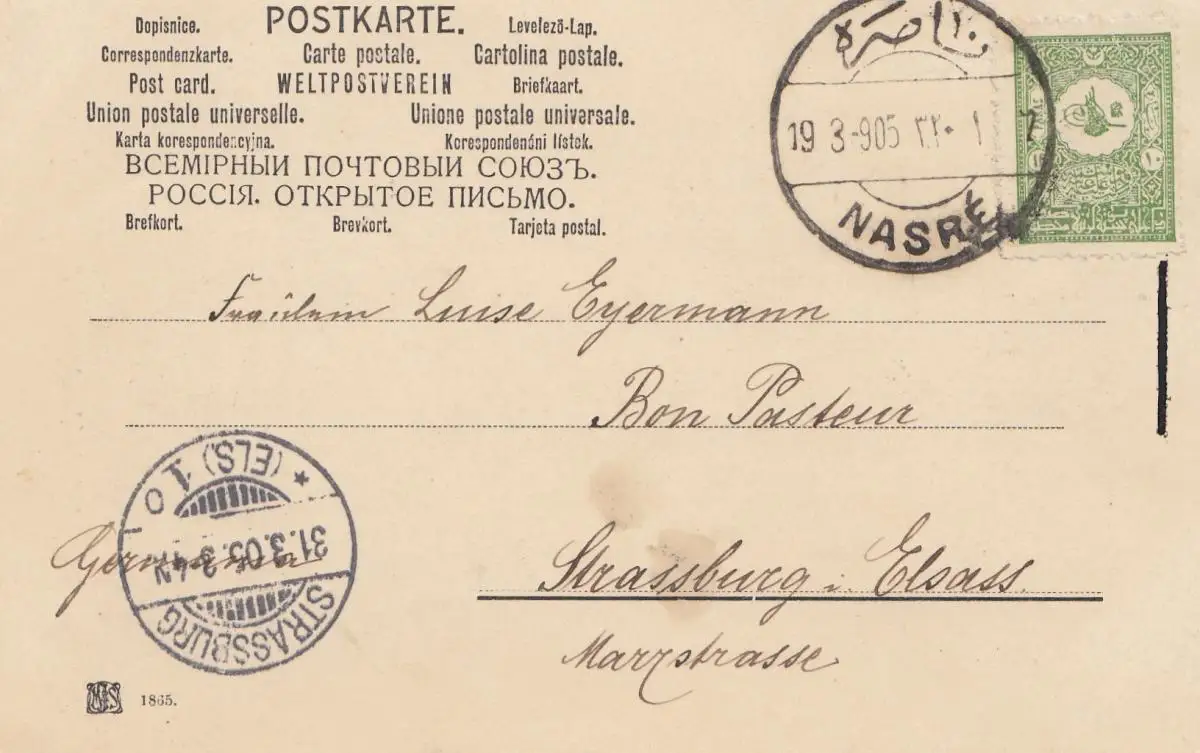 Dopisnice. POSTKARTE. Levelező-Lap.
Correspondenzkarte. Carte postale. Cartolina postale.
Post card. WELTPOSTVEREIN Briefkaart.
Union postale universelle. Unione postale universale.
Karta korespondencyjna. Korespondenóni lístek.
ВСЕМІРНЫИ ПОЧТОВЫИ СОЮЗЪ.
РОССІЯ. ОТКРЫТОЕ ПИСЬМО.
Brefkort. Brevkort. Tarjeta postal.
ناصره
19 3-905 ٣٢٠ ١ ٦
NASRÉ
١٠ ١٠
Fräulein Luise Eyermann
Bon Pasteur
Germania
Strassburg i. Elsass.
Marzstrasse
STRASSBURG
31.3.05. 3-4N
* (ELS). 1 o
MFS 1865.